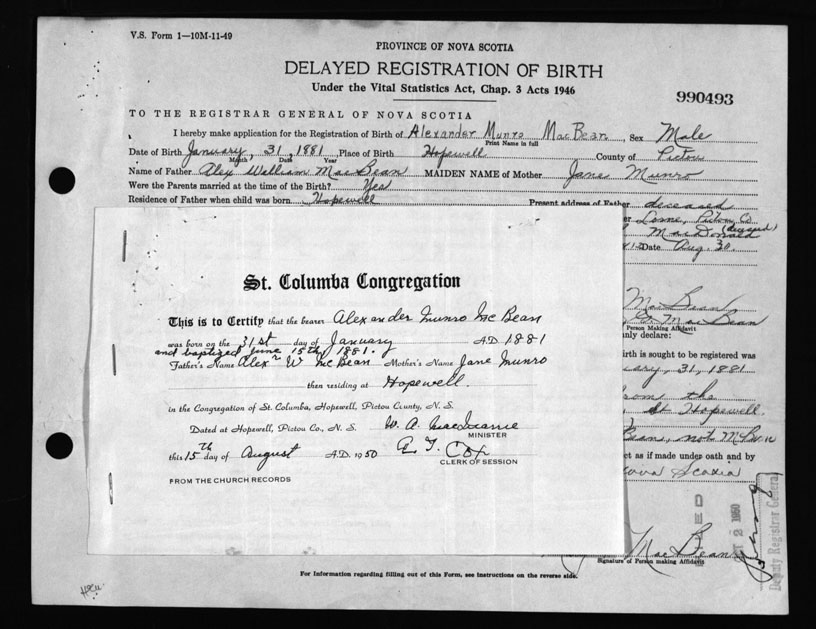 V.S. Form 1—10M-11-49
PROVINCE OF NOVA SCOTIA
DELAYED REGISTRATION OF BIRTH
Under the Vital Statistics Act, Chap. 3 Acts 1946
990493
TO THE REGISTRAR GENERAL OF NOVA SCOTIA
I hereby make application for the Registration of Birth of Alexander Munro MacBean, Sex Male
Print Name in full
Date of Birth January, 31, 1881 Place of Birth Hopewell County of Pictou
Month Date Year
Name of Father Alex William MacBean MAIDEN NAME of Mother Jane Munro
Were the Parents married at the time of the Birth? Yes
Residence of Father when child was born Hopewell Present address of Father deceased
Lorne, Pictou Co
MacDonald (deceased)
Date Aug. 30.
St. Columba Congregation
This is to Certify that the bearer Alexander Munro McBean
was born on the 31st day of January A.D. 1881
and baptized June 15th 1881.
Father's Name Alexr W McBean Mother's Name Jane Munro
then residing at Hopewell.
in the Congregation of St. Columba, Hopewell, Pictou County, N. S.
Dated at Hopewell, Pictou Co., N. S. W. A.
MINISTER
this 15th day of August A.D. 1950 Cox
CLERK OF SESSION
FROM THE CHURCH RECORDS
MacBean
MacBean
Person Making Affidavit
nly declare:
irth is sought to be registered was
ary, 31, 1881
from the
St Hopewell.
Bean, not McBean
ct as if made under oath and by
ova Scotia
ED
2 1950
Deputy Registrar General
MacBean
Signature of Person making Affidavit
For Information regarding filling out of this Form, see instructions on the reverse side.